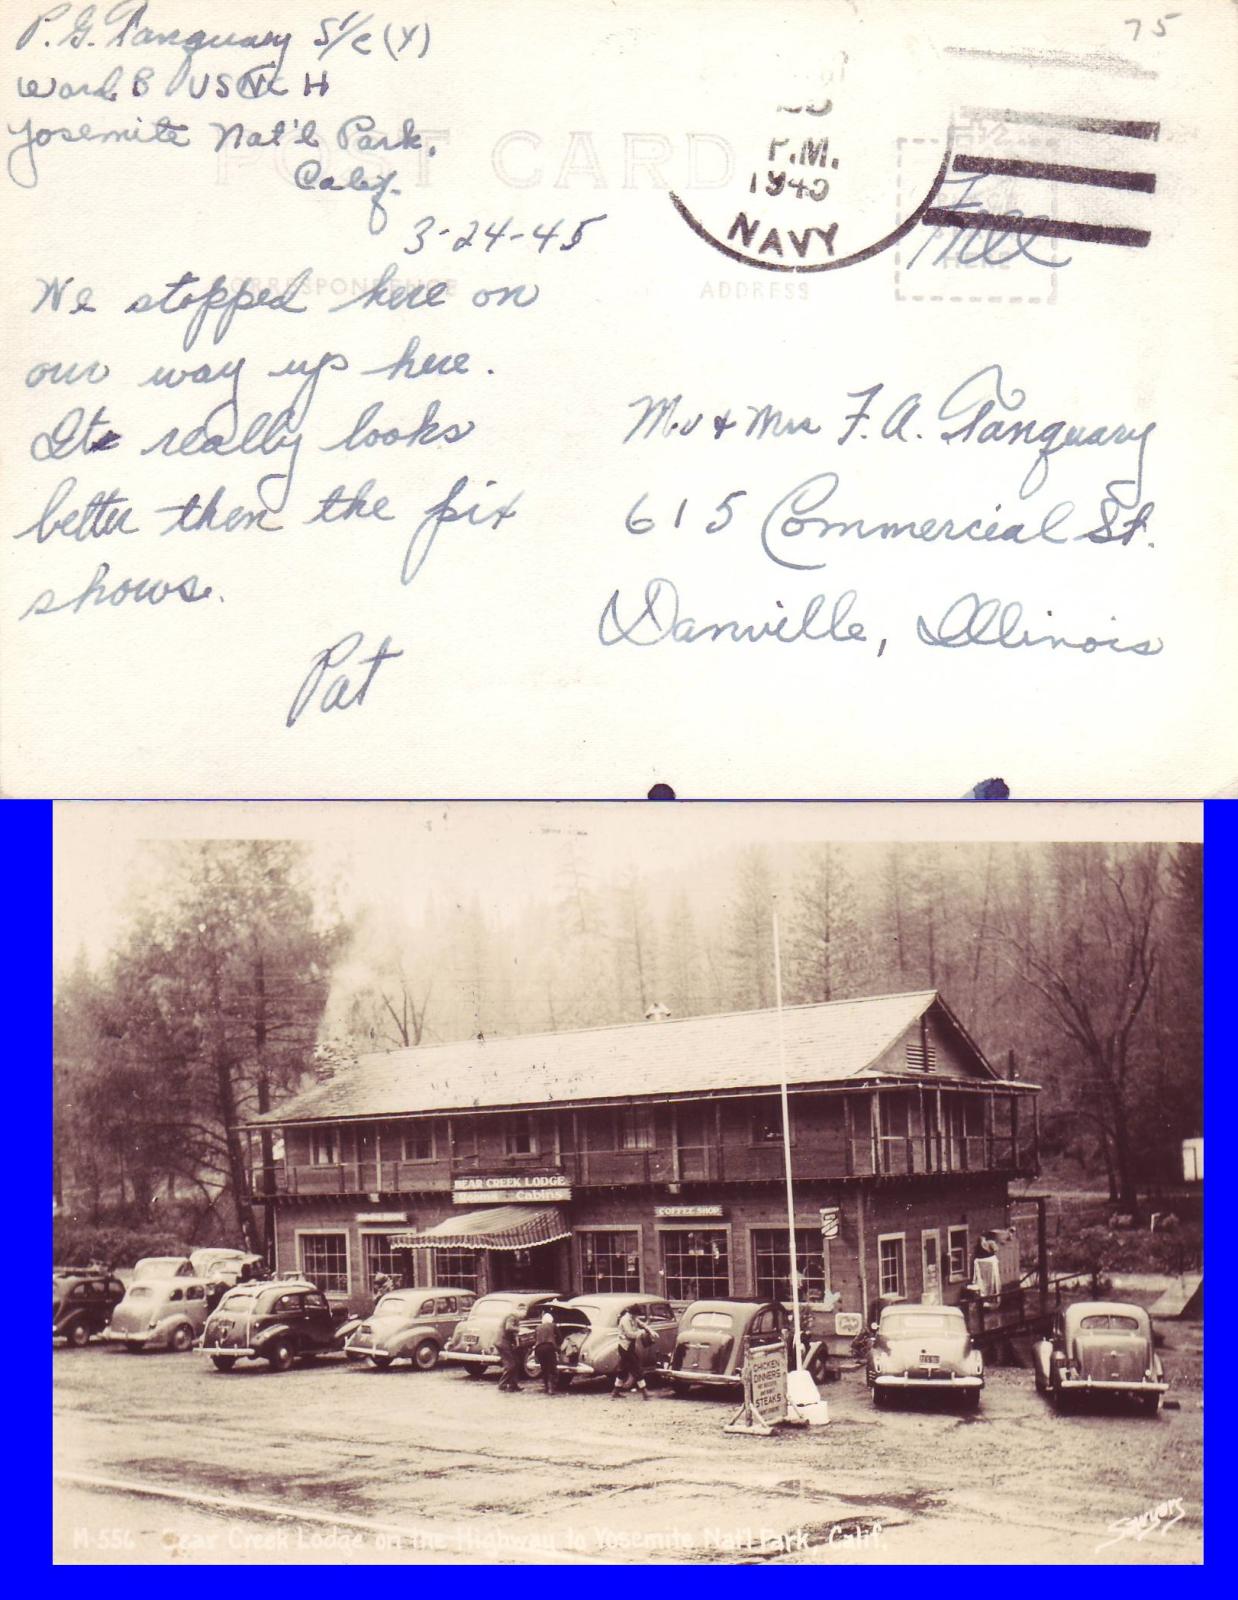 P. G. Tanquary S 1/c (Y)
Ward B USNCH
Yosemite Nat'l Park.
Calif.
3-24-45
We stopped here on
our way up here.
It really looks
better then the pix
shows.
Pat
75
P.M.
NAVY
Free
HERE
POST CARD
CORRESPONDENCE
ADDRESS
Mr & Mrs F. A. Tanquary
615 Commercial St.
Danville, Illinois
BEAR CREEK LODGE
Rooms Cabins
COFFEE SHOP
CHICKEN
DINNERS
STEAKS
M-556 Bear Creek Lodge on the Highway to Yosemite Nat'l Park, Calif.
Sawyers